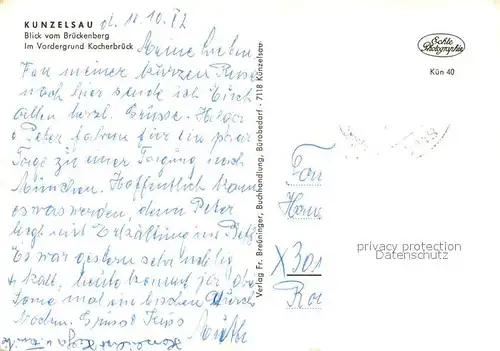 KÜNZELSAU d. 11.10.82
Blick vom Brückenberg
Im Vordergrund Kocherbrück
Meine Lieben
Von meiner kurzen Reise
nach hier sende ich Euch
allen herzl. Grüsse. Helga
u Peter fahren für ein paar
Tage zu einer Tagung nach
München. Hoffentlich kann
es was werden, denn Peter
liegt mit Erkältung im Bett
Es war gestern sehr neblig
+ kalt, heute kommt ja die
Sonne mal ein bischen durch
Boden. Gruss Kuss
Mutti
Verlag Fr. Breuninger, Buchhandlung, Bürobedarf - 7118 Künzelsau
Echte Photographie
Kün 40
Fam
X 301
privacy protection
Datenschutz